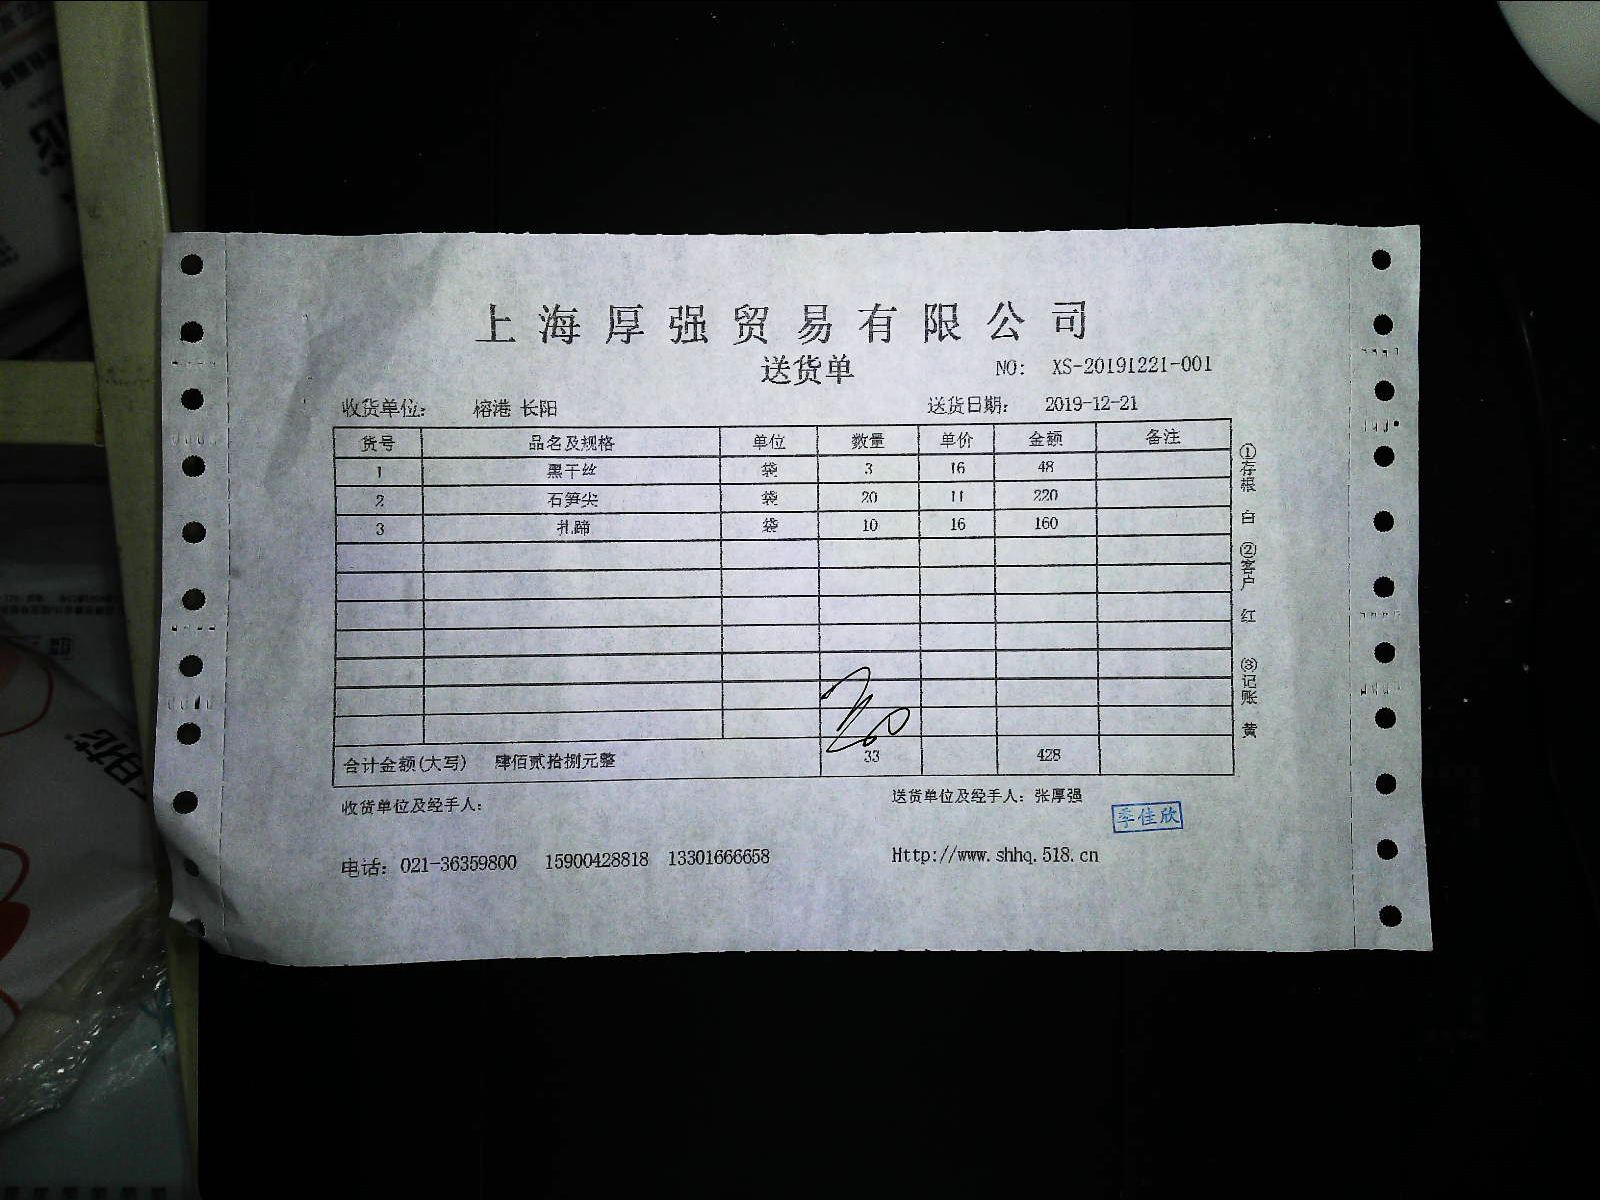 上海厚强贸易有限公司
送货单
NO: XS-20191221-001
收货单位: 榕港 长阳 送货日期: 2019-12-21
货号 品名及规格 单位 数量 单价 金额 备注
1 黑干丝 袋 3 16 48
2 石笋尖 袋 20 11 220
3 扎蹄 袋 10 16 160
合计金额(大写) 肆佰贰拾捌元整 33 428
①存根 白 ②客户 红 ③记账 黄
收货单位及经手人: 送货单位及经手人: 张厚强
季佳欣
电话: 021-36359800 15900428818 13301666658 Http://www.shhq.518.cn